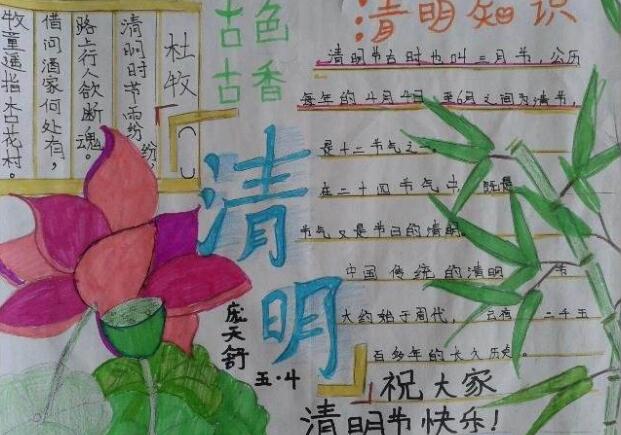 杜牧
清明时节雨纷纷
路上行人欲断魂。
借问酒家何处有，
牧童遥指杏花村。
古色
古香
清明
庞天舒
五·4
清明知识
清明节古时也叫三月节，公历
每年的4月4日 至6月之间为清节，
是十二节气之一
在二十四节气中，既是
节气又是节日的清明
中国传统的清明 节
大约始于周代， 二千五
百多年的长久历史。
祝大家
清明节快乐！